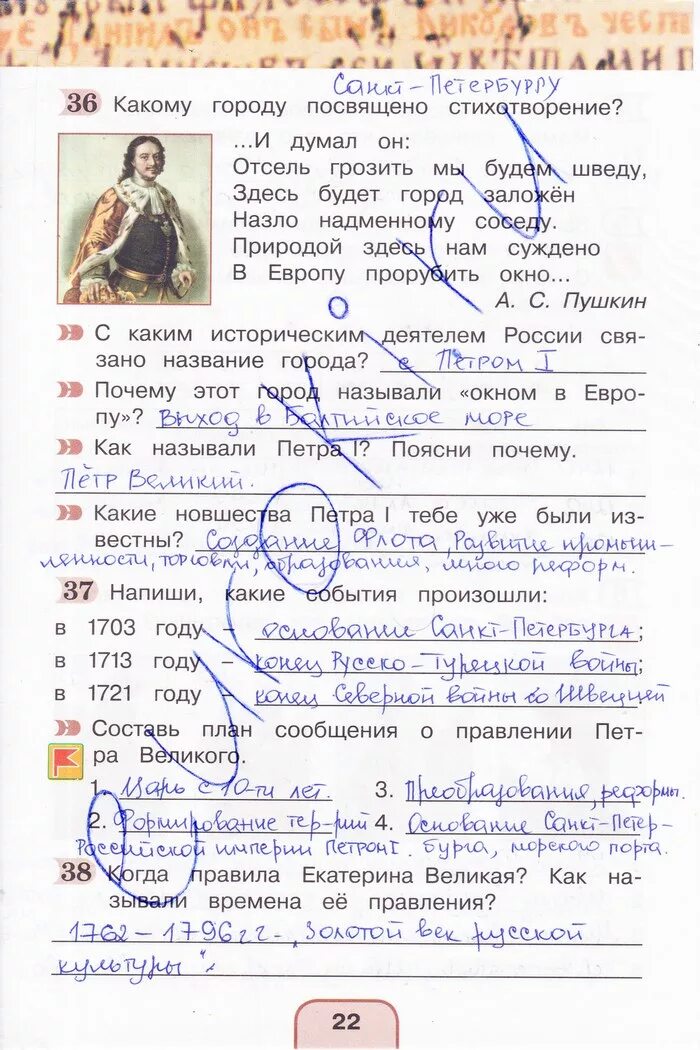 Санкт-Петербургу
36 Какому городу посвящено стихотворение?
...И думал он:
Отсель грозить мы будем шведу,
Здесь будет город заложён
Назло надменному соседу.
Природой здесь нам суждено
В Европу прорубить окно...
А. С. Пушкин
С каким историческим деятелем России свя-
зано название города? с Петром I
Почему этот город называли «окном в Евро-
пу»? Выход в Балтийское море
Как называли Петра I? Поясни почему.
Пётр Великий.
Какие новшества Петра I тебе уже были из-
вестны? Создание Флота, Развитие промыш-
ленности, торговли, образования, много реформ.
37 Напиши, какие события произошли:
в 1703 году – основание Санкт-Петербурга;
в 1713 году – конец Русско-Турецкой войны;
в 1721 году – конец Северной войны со Швецией
Составь план сообщения о правлении Пет-
ра Великого.
1. Царь с 10-ти лет. 3. Преобразования, реформы.
2. Формирование тер-рии 4. Основание Санкт-Петер-
Российской империи Петром I. бурга, морского порта.
38 Когда правила Екатерина Великая? Как на-
зывали времена её правления?
1762 – 1796 гг. „Золотой век русской
культуры".
22